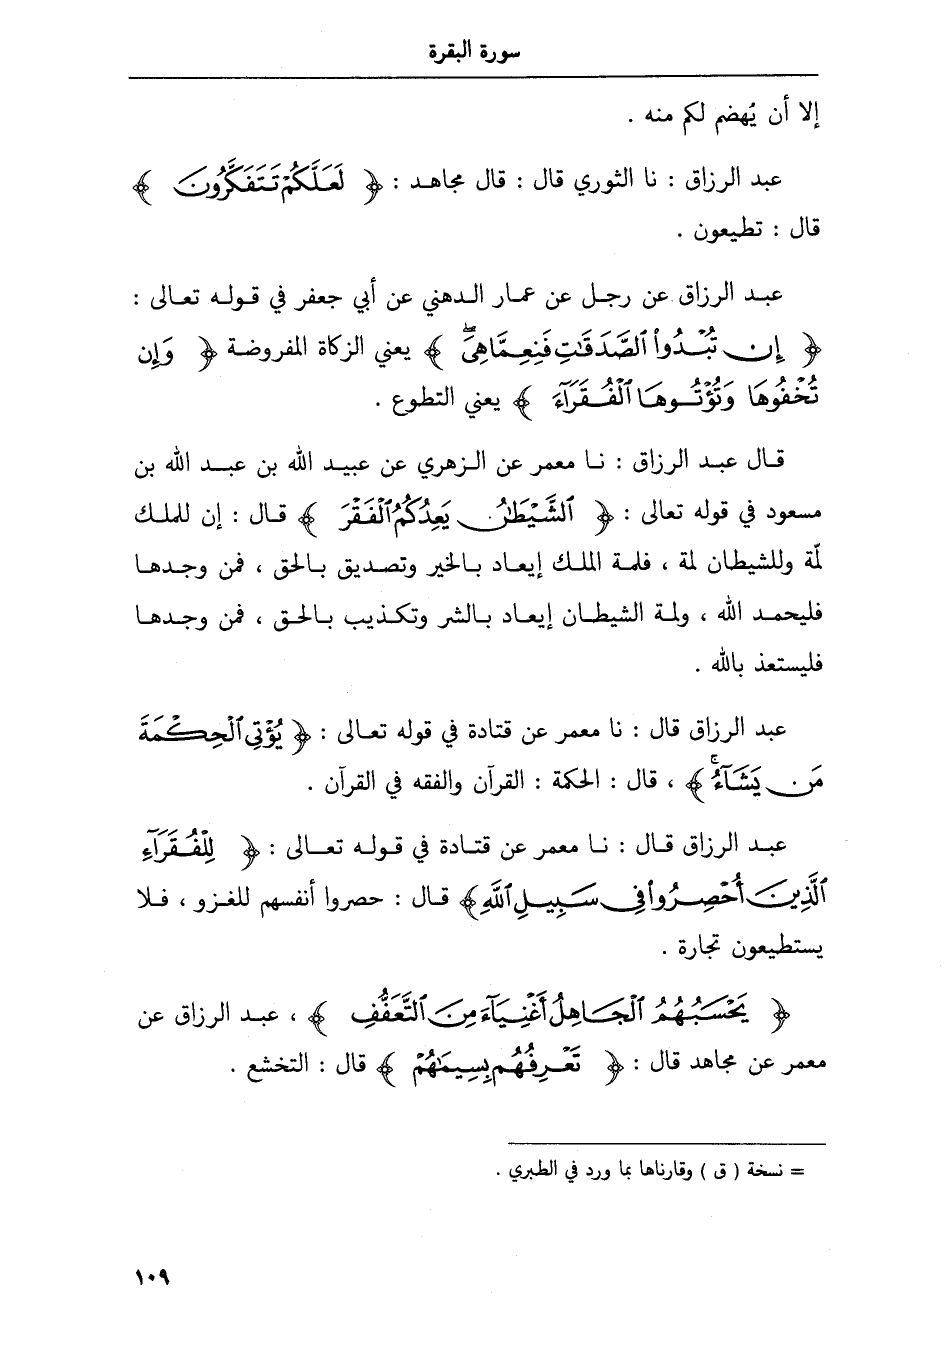 سورة البقرة
إلا أن يُهضم لكم منه .
عبد الرزاق : نا الثوري قال : قال مجاهد : ﴿ لَعَلَّكُمْ تَتَفَكَّرُونَ ﴾
قال : تطيعون .
عبد الرزاق عن رجل عن عمار الدهني عن أبي جعفر في قوله تعالى :
﴿ إِن تُبْدُوا۟ ٱلصَّدَقَٰتِ فَنِعِمَّا هِىَۖ ﴾ يعني الزكاة المفروضة ﴿ وَإِن
تُخْفُوهَا وَتُؤْتُوهَا ٱلْفُقَرَآءَ ﴾ يعني التطوع .
قال عبد الرزاق : نا معمر عن الزهري عن عبيد الله بن عبد الله بن
مسعود في قوله تعالى : ﴿ ٱلشَّيْطَٰنُ يَعِدُكُمُ ٱلْفَقْرَ ﴾ قال : إن للملك
لمّة وللشيطان لمة ، فلمة الملك إيعاد بالخير وتصديق بالحق ، فمن وجدها
فليحمد الله ، ولمة الشيطان إيعاد بالشر وتكذيب بالحق ، فمن وجدها
فليستعذ بالله .
عبد الرزاق قال : نا معمر عن قتادة في قوله تعالى : ﴿ يُؤْتِى ٱلْحِكْمَةَ
مَن يَشَآءُۚ ﴾ ، قال : الحكمة : القرآن والفقه في القرآن .
عبد الرزاق قال : نا معمر عن قتادة في قوله تعالى : ﴿ لِلْفُقَرَآءِ
ٱلَّذِينَ أُحْصِرُوا۟ فِى سَبِيلِ ٱللَّهِ ﴾ قال : حصروا أنفسهم للغزو ، فلا
يستطيعون تجارة .
﴿ يَحْسَبُهُمُ ٱلْجَاهِلُ أَغْنِيَآءَ مِنَ ٱلتَّعَفُّفِ ﴾ ، عبد الرزاق عن
معمر عن مجاهد قال : ﴿ تَعْرِفُهُم بِسِيمَٰهُمْ ﴾ قال : التخشع .
= نسخة ( ق ) وقارناها بما ورد في الطبري .
١٠٩